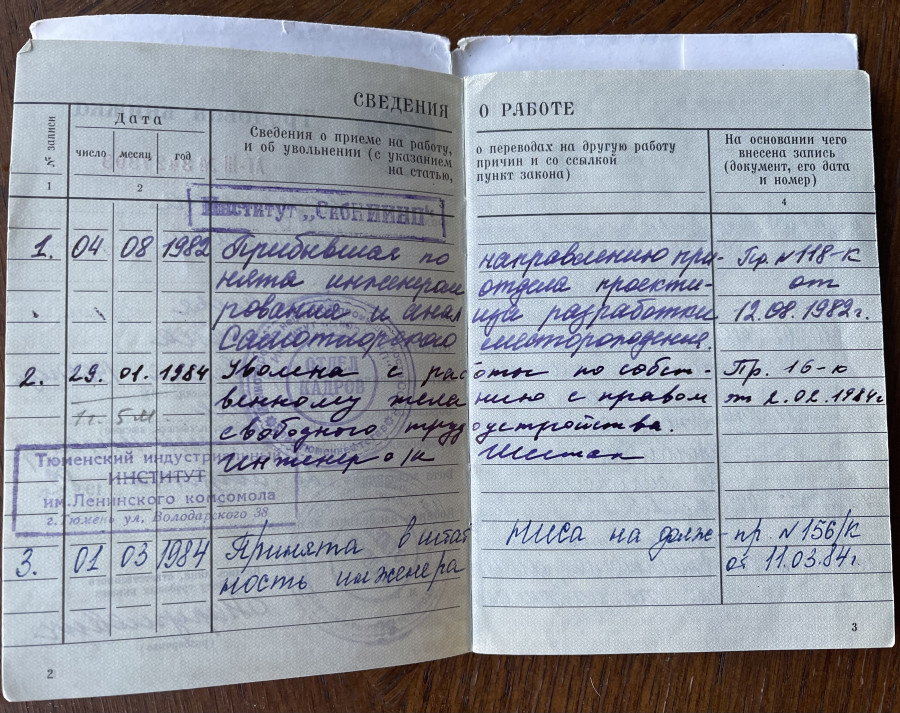 СВЕДЕНИЯ О РАБОТЕ
№ записи
Дата
число
месяц
год
Сведения о приеме на работу,
и об увольнении (с указанием
на статью,
о переводах на другую работу
причин и со ссылкой
пункт закона)
На основании чего
внесена запись
(документ, его дата
и номер)
1
2
3
4
Институт „СибНИИНП“
1. 04 08 1982 Прибывшая по направлению при- Пр. №118-к
нята инженером отдела проекти- от
рования и анализа разработки 12.08.1982г.
Самотлорского месторождения.
2. 29. 01. 1984 Уволена с работы по собст- Пр. 16-к
1г. 5м венному желанию с правом от 2.02.1984г
свободного трудоустройства.
Инженер о/к
ОТДЕЛ
КАДРОВ
Тюменский индустриальный
ИНСТИТУТ
им.Ленинского комсомола
г.Тюмень ул. Володарского 38
3. 01 03 1984 Принята в штат НИСа на долж- пр. №156/к
ность инженера от 11.03.84г.
2
3